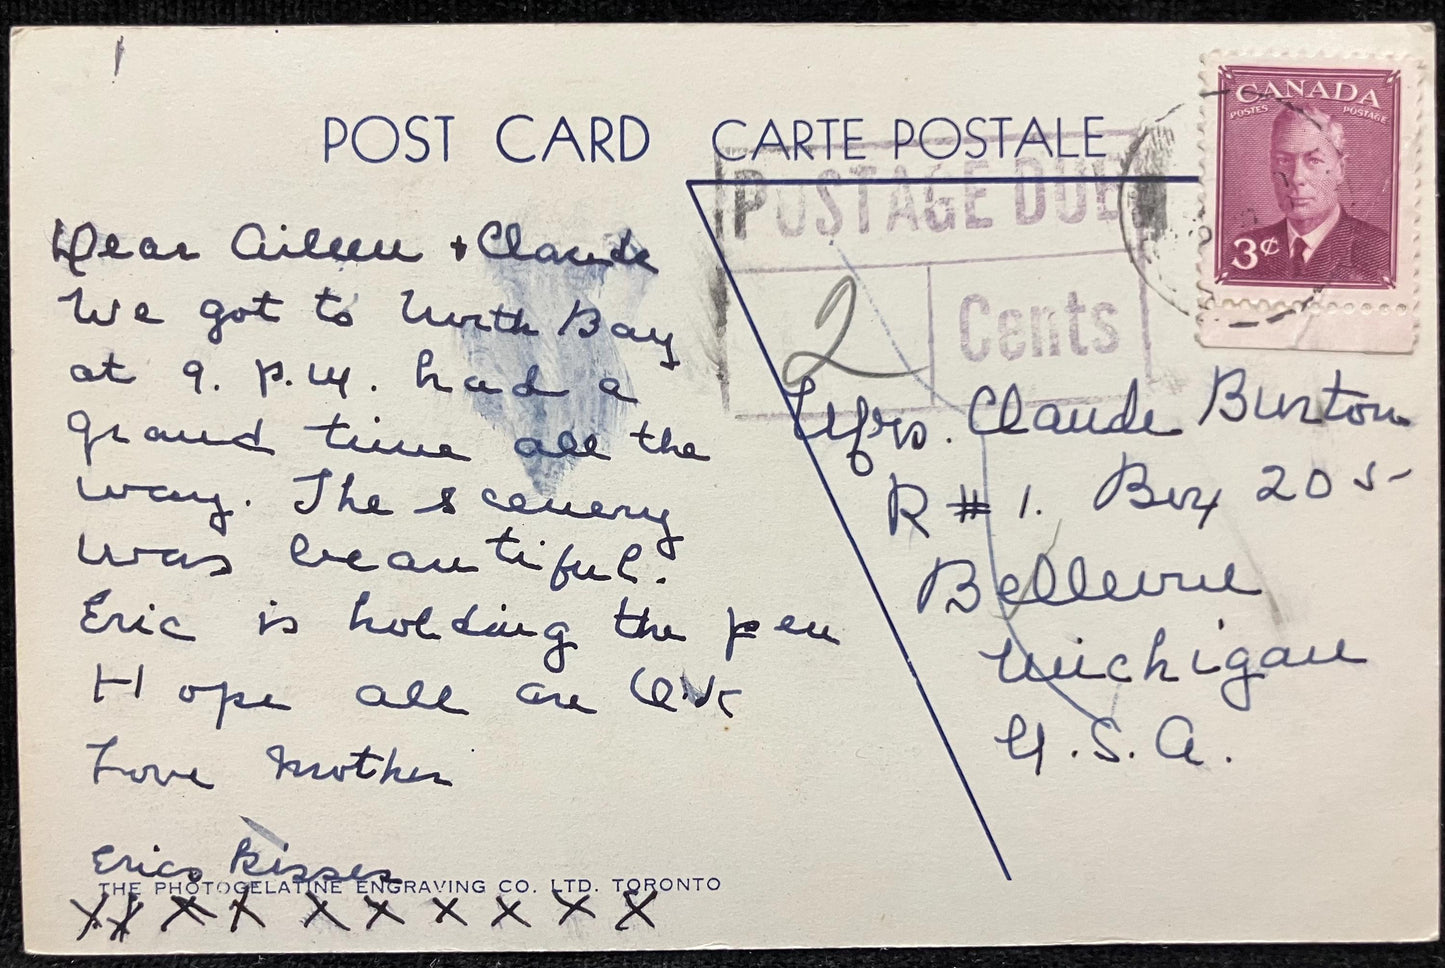 POST CARD CARTE POSTALE
CANADA
POSTES POSTAGE
3¢
POSTAGE DUE
2 Cents
Dear Aileen + Claude
We got to North Bay
at 9. P.M. had a
grand time all the
way. The scenery
was beautiful.
Eric is holding the pen
Hope all are O.K
Love Mother
Erics Kisses
THE PHOTOGELATINE ENGRAVING CO. LTD. TORONTO
X X X X X X X X X X
Mrs. Claude Burton
R # 1. Box 205
Bellevue
Michigan
U.S.A.